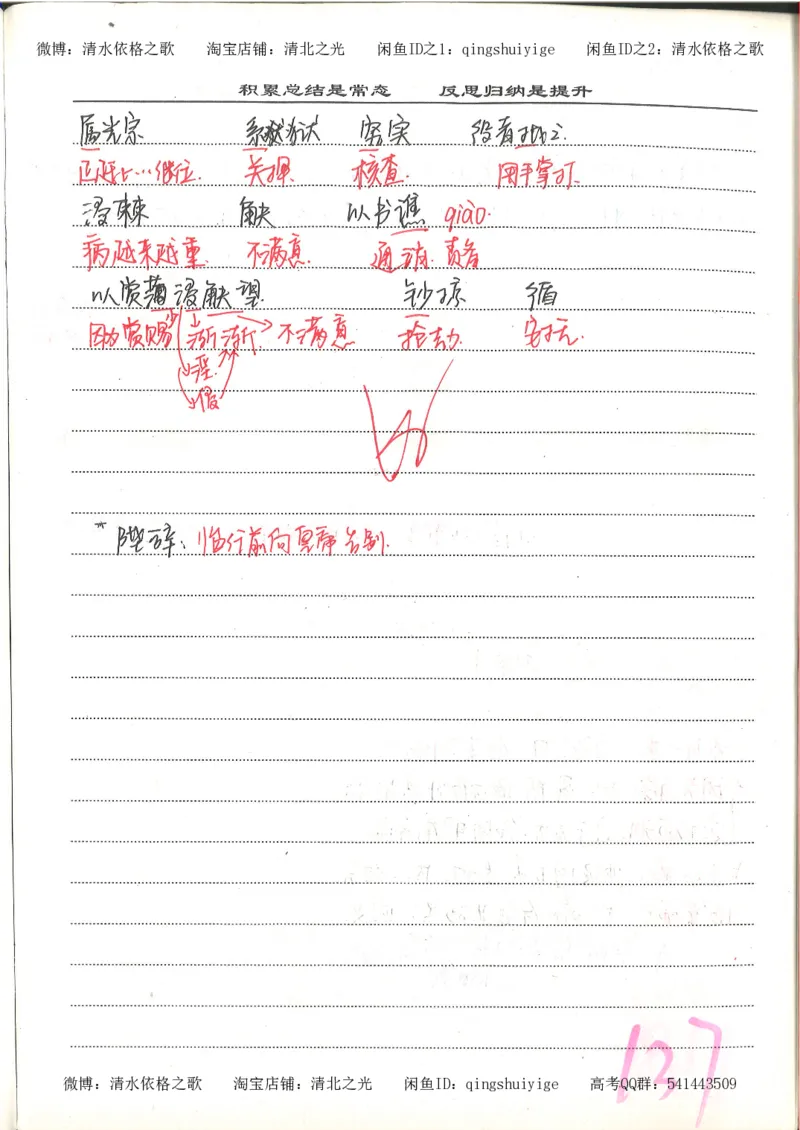 微博：清水依格之歌 淘宝店铺：清北之光 闲鱼ID之1：qingshuiyige 闲鱼ID之2：清水依格之歌
积累总结是常态 反思归纳是提升
属光宗 系狱 穷实
正赶上…继位. 关押. 核查. 用手掌打.
浸棘 觖 以书谯 qiào.
病越来越重. 不满意. 通 责备
以赏薄浸觖望. 钞掠 循
因为赏赐少 渐渐 不满意 抢劫. 安抚.
浸.
*陛辞：临行前向皇帝告别.
137
微博：清水依格之歌 淘宝店铺：清北之光 闲鱼ID：qingshuiyige 高考QQ群：541443509